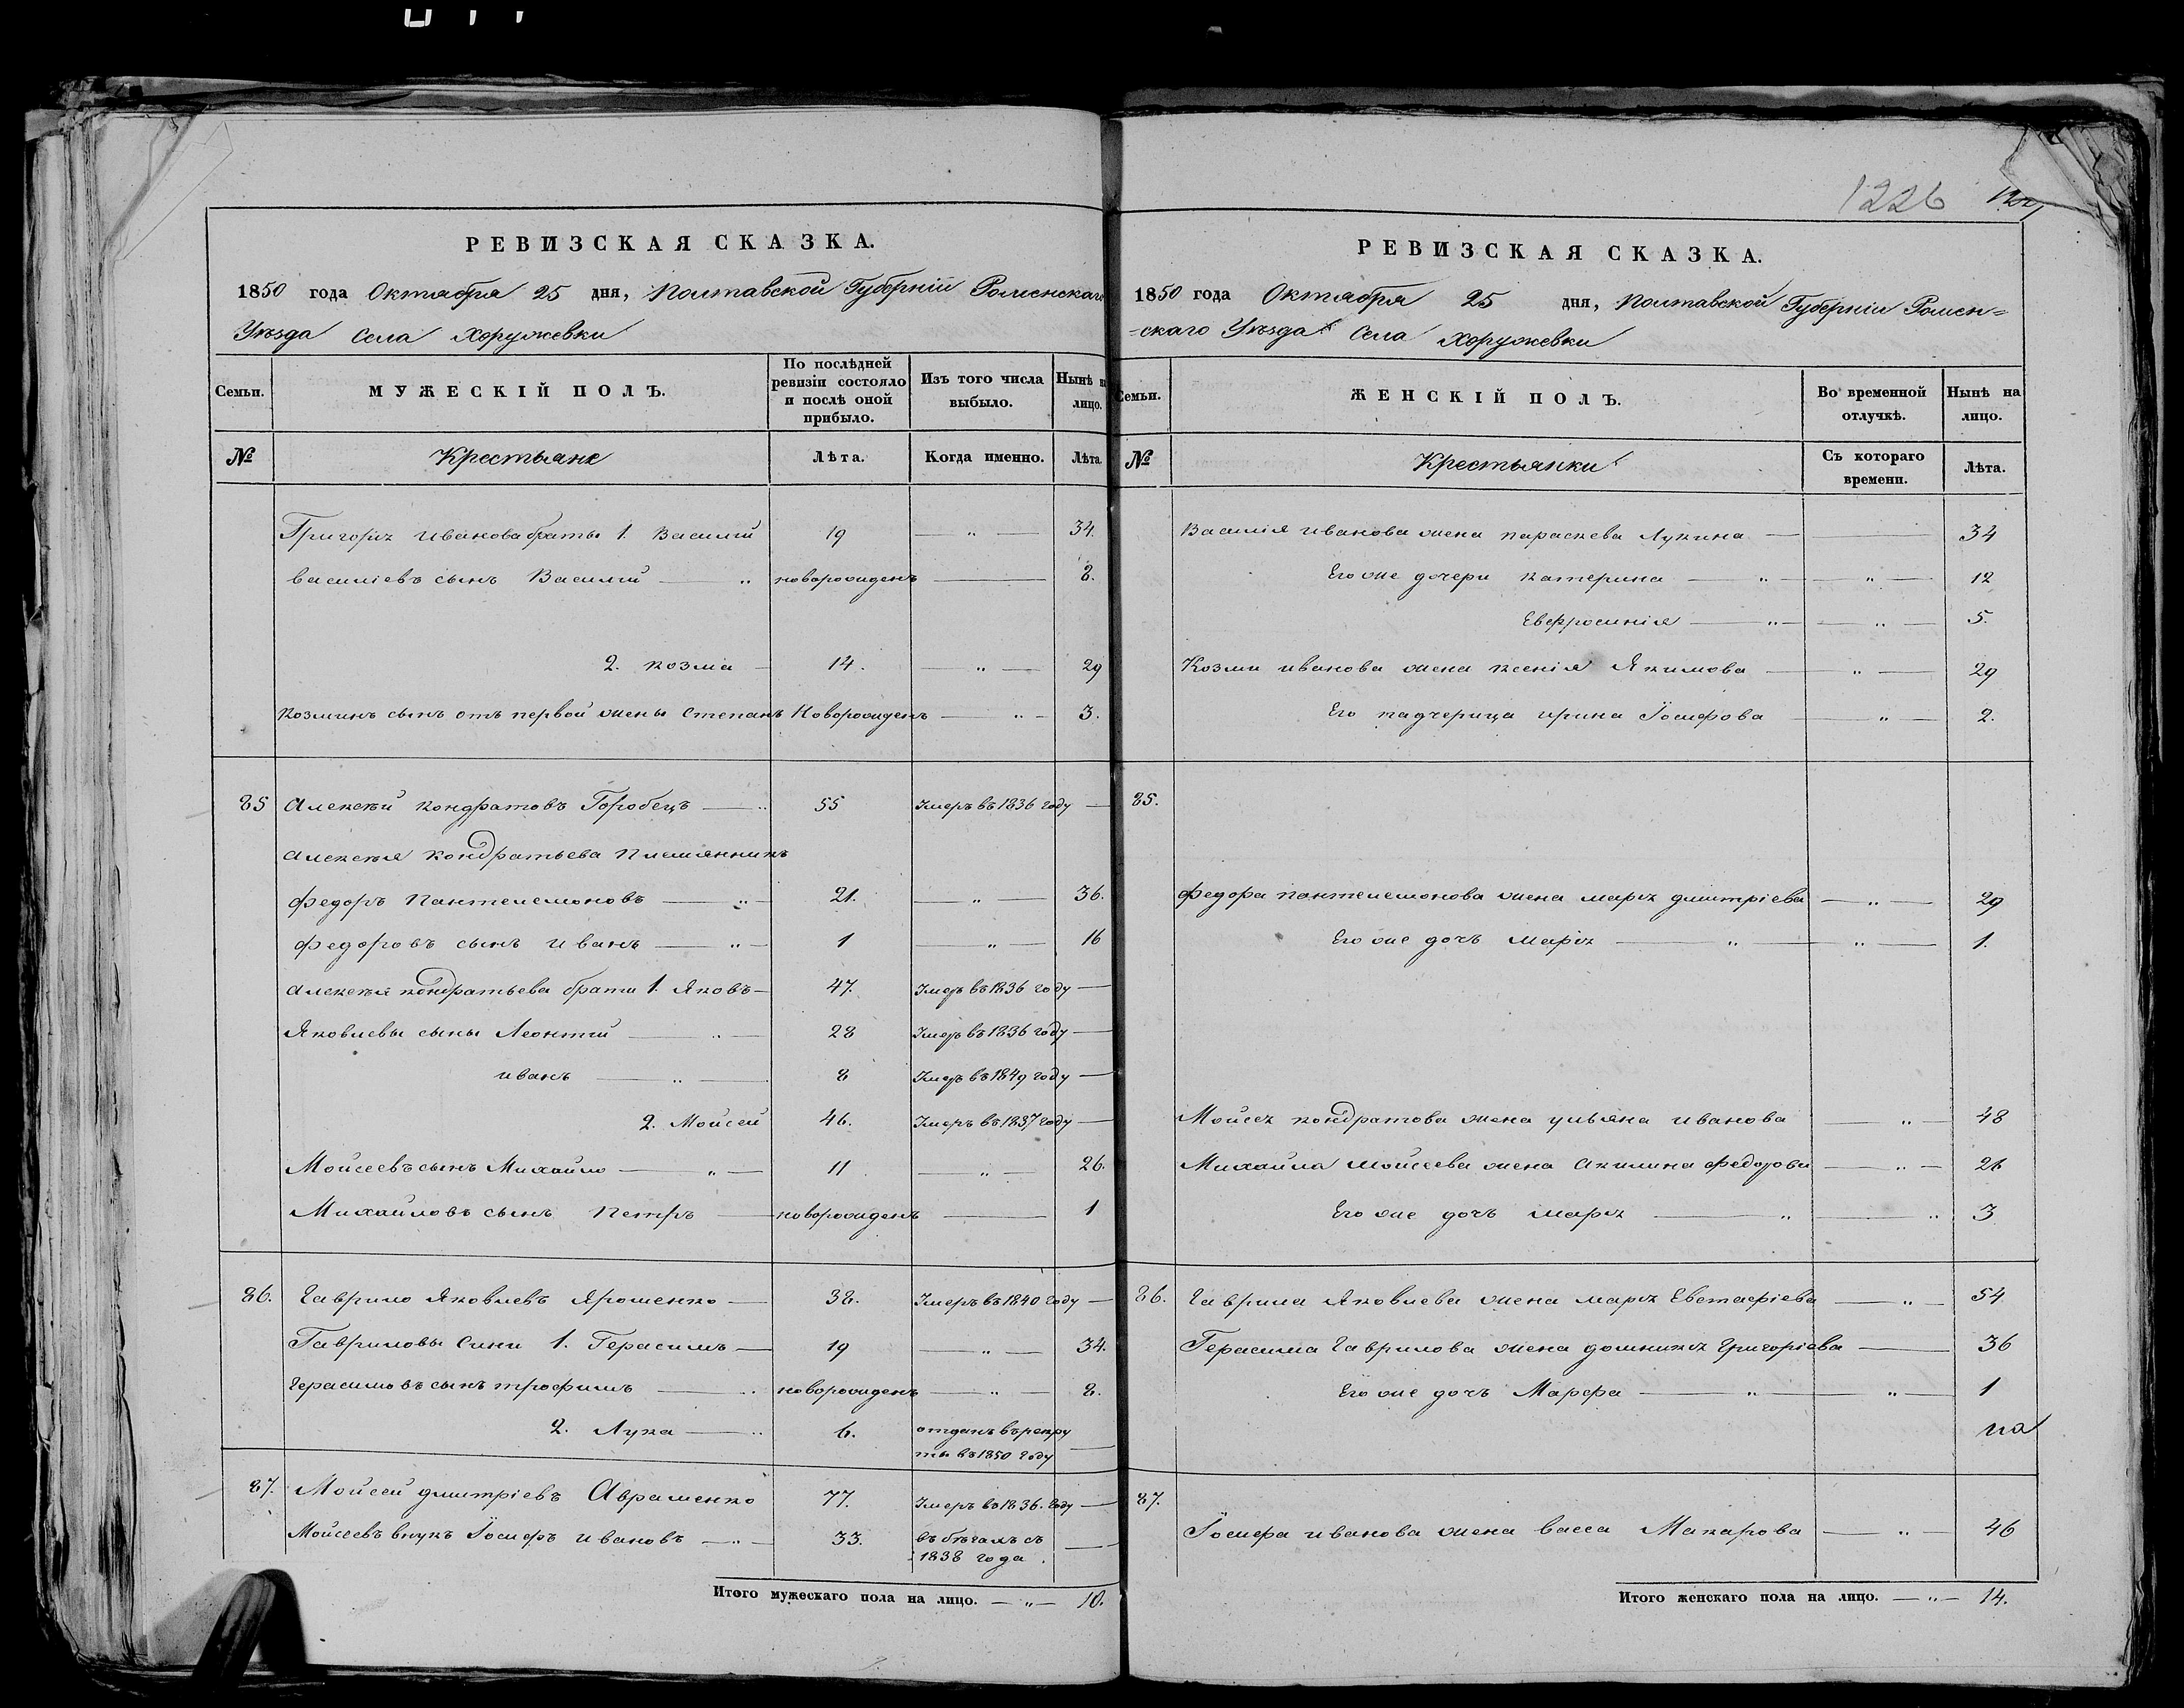 1226
РЕВИЗСКАЯ СКАЗКА.
1850 года Октября 25 дня, Полтавской Губерніи Роменскаго
Уѣзда Села Хоружевки
Семьи.
МУЖЕСКІЙ ПОЛЪ.
По послѣдней ревизіи состояло и послѣ оной прибыло.
Изъ того числа выбыло.
Нынѣ на лицо.
№
Крестьяне
Лѣта.
Когда именно.
Лѣта
Григорія Иванова браты 1. Василій 19 — „ — 34.
Василіевъ сынъ Василій — „ новорожденъ — 8.
2. Козма — 14. — „ — 29
Козминъ сынъ отъ первой жены Степанъ Новорожденъ — „ — 3.
85 Алексѣй Кондратовъ Горобецъ — „ 55 Умеръ въ 1836 году —
Алексѣя Кондратьева Племянникъ
Федоръ Пантелемоновъ — „ — 21. — „ — 36.
Федоровъ сынъ Иванъ — „ — 1 — „ — 16
Алексѣя Кондратьева браты 1. Яковъ — 47. Умеръ въ 1836 году —
Яковлевы сыны Леонтій — „ — 28 Умеръ въ 1836 году —
Иванъ — „ — 8 Умеръ въ 1849 году —
2. Мойсей 46. Умеръ въ 1837 году —
Мойсеевъ сынъ Михайло — „ — 11 — „ — 26.
Михайловъ сынъ Петръ — новорожденъ — 1
86. Гаврило Яковлевъ Ярошенко — 38. Умеръ въ 1840 году —
Гавриловы Сини 1. Герасимъ — 19 — „ — 34.
Герасимовъ сынъ трофимъ — „ новорожденъ — „ — 8.
2. Лука — „ 6. отданъ въ рекру
ты въ 1850 году —
87. Мойсей Дмитріевъ Авраменко 77. Умеръ въ 1836. году —
Мойсеевъ внукъ Іосифъ Ивановъ — „ — 33. въ бѣгахъ съ
1838 года. —
Итого мужескаго пола на лицо. — „ — 10.
РЕВИЗСКАЯ СКАЗКА.
1850 года Октября 25 дня, Полтавской Губерніи Ромен=
=скаго Уѣзда Села Хоружевки
Семьи.
ЖЕНСКІЙ ПОЛЪ.
Во временной отлучкѣ.
Нынѣ на лицо.
№
Крестьянки
Съ котораго времени.
Лѣта.
Василія Иванова жена Параскева Лукина — 34
Его же дочери Катерина — „ — „ — 12
Евфросинія — „ — „ — 5.
Козми Иванова жена Ксенія Якимова — „ — 29
Его падчерица Ирина Іосифова — „ — 2.
85.
Федора Пантелемонова жена Марія Дмитріева — „ — 29
Его же дочь Марія — „ — „ — 1.
Мойсея Кондратова жена Ульяна Иванова — „ — 48
Михайла Мойсеева жена Акилина Федорова — „ — 26
Его же дочь Марія — „ — „ 3
86. Гаврила Яковлева жена Марія Евстафіева — „ — 54
Герасима Гаврилова жена Домникія Григоріева — 36
Его же дочь Марфа — „ — „ — 1
87.
Іосифа Иванова жена Васса Макарова — „ — 46
Итого женскаго пола на лицо. — „ — 14.